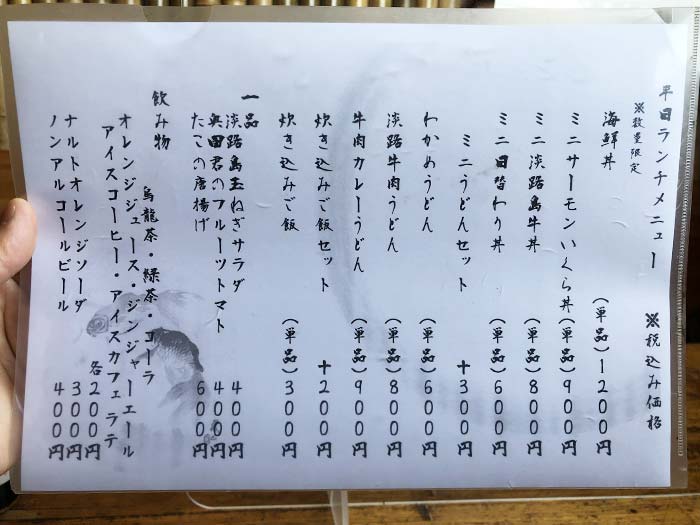 平日ランチメニュー ※税込み価格
※数量限定
海鮮丼 (単品)1200円
ミニサーモンいくら丼(単品)900円
ミニ淡路島牛丼 (単品)800円
ミニ日替わり丼 (単品)600円
ミニうどんセット +300円
わかめうどん (単品)600円
淡路牛肉うどん (単品)800円
牛肉カレーうどん (単品)900円
炊き込みご飯セット +200円
炊き込みご飯 (単品)300円
一品
淡路島玉ねぎサラダ 400円
奥田君のフルーツトマト 400円
たこの唐揚げ 600円
飲み物
烏龍茶・緑茶・コーラ
オレンジジュース・ジンジャーエール
アイスコーヒー・アイスカフェラテ
各200円
ナルトオレンジソーダ 300円
ノンアルコールビール 400円